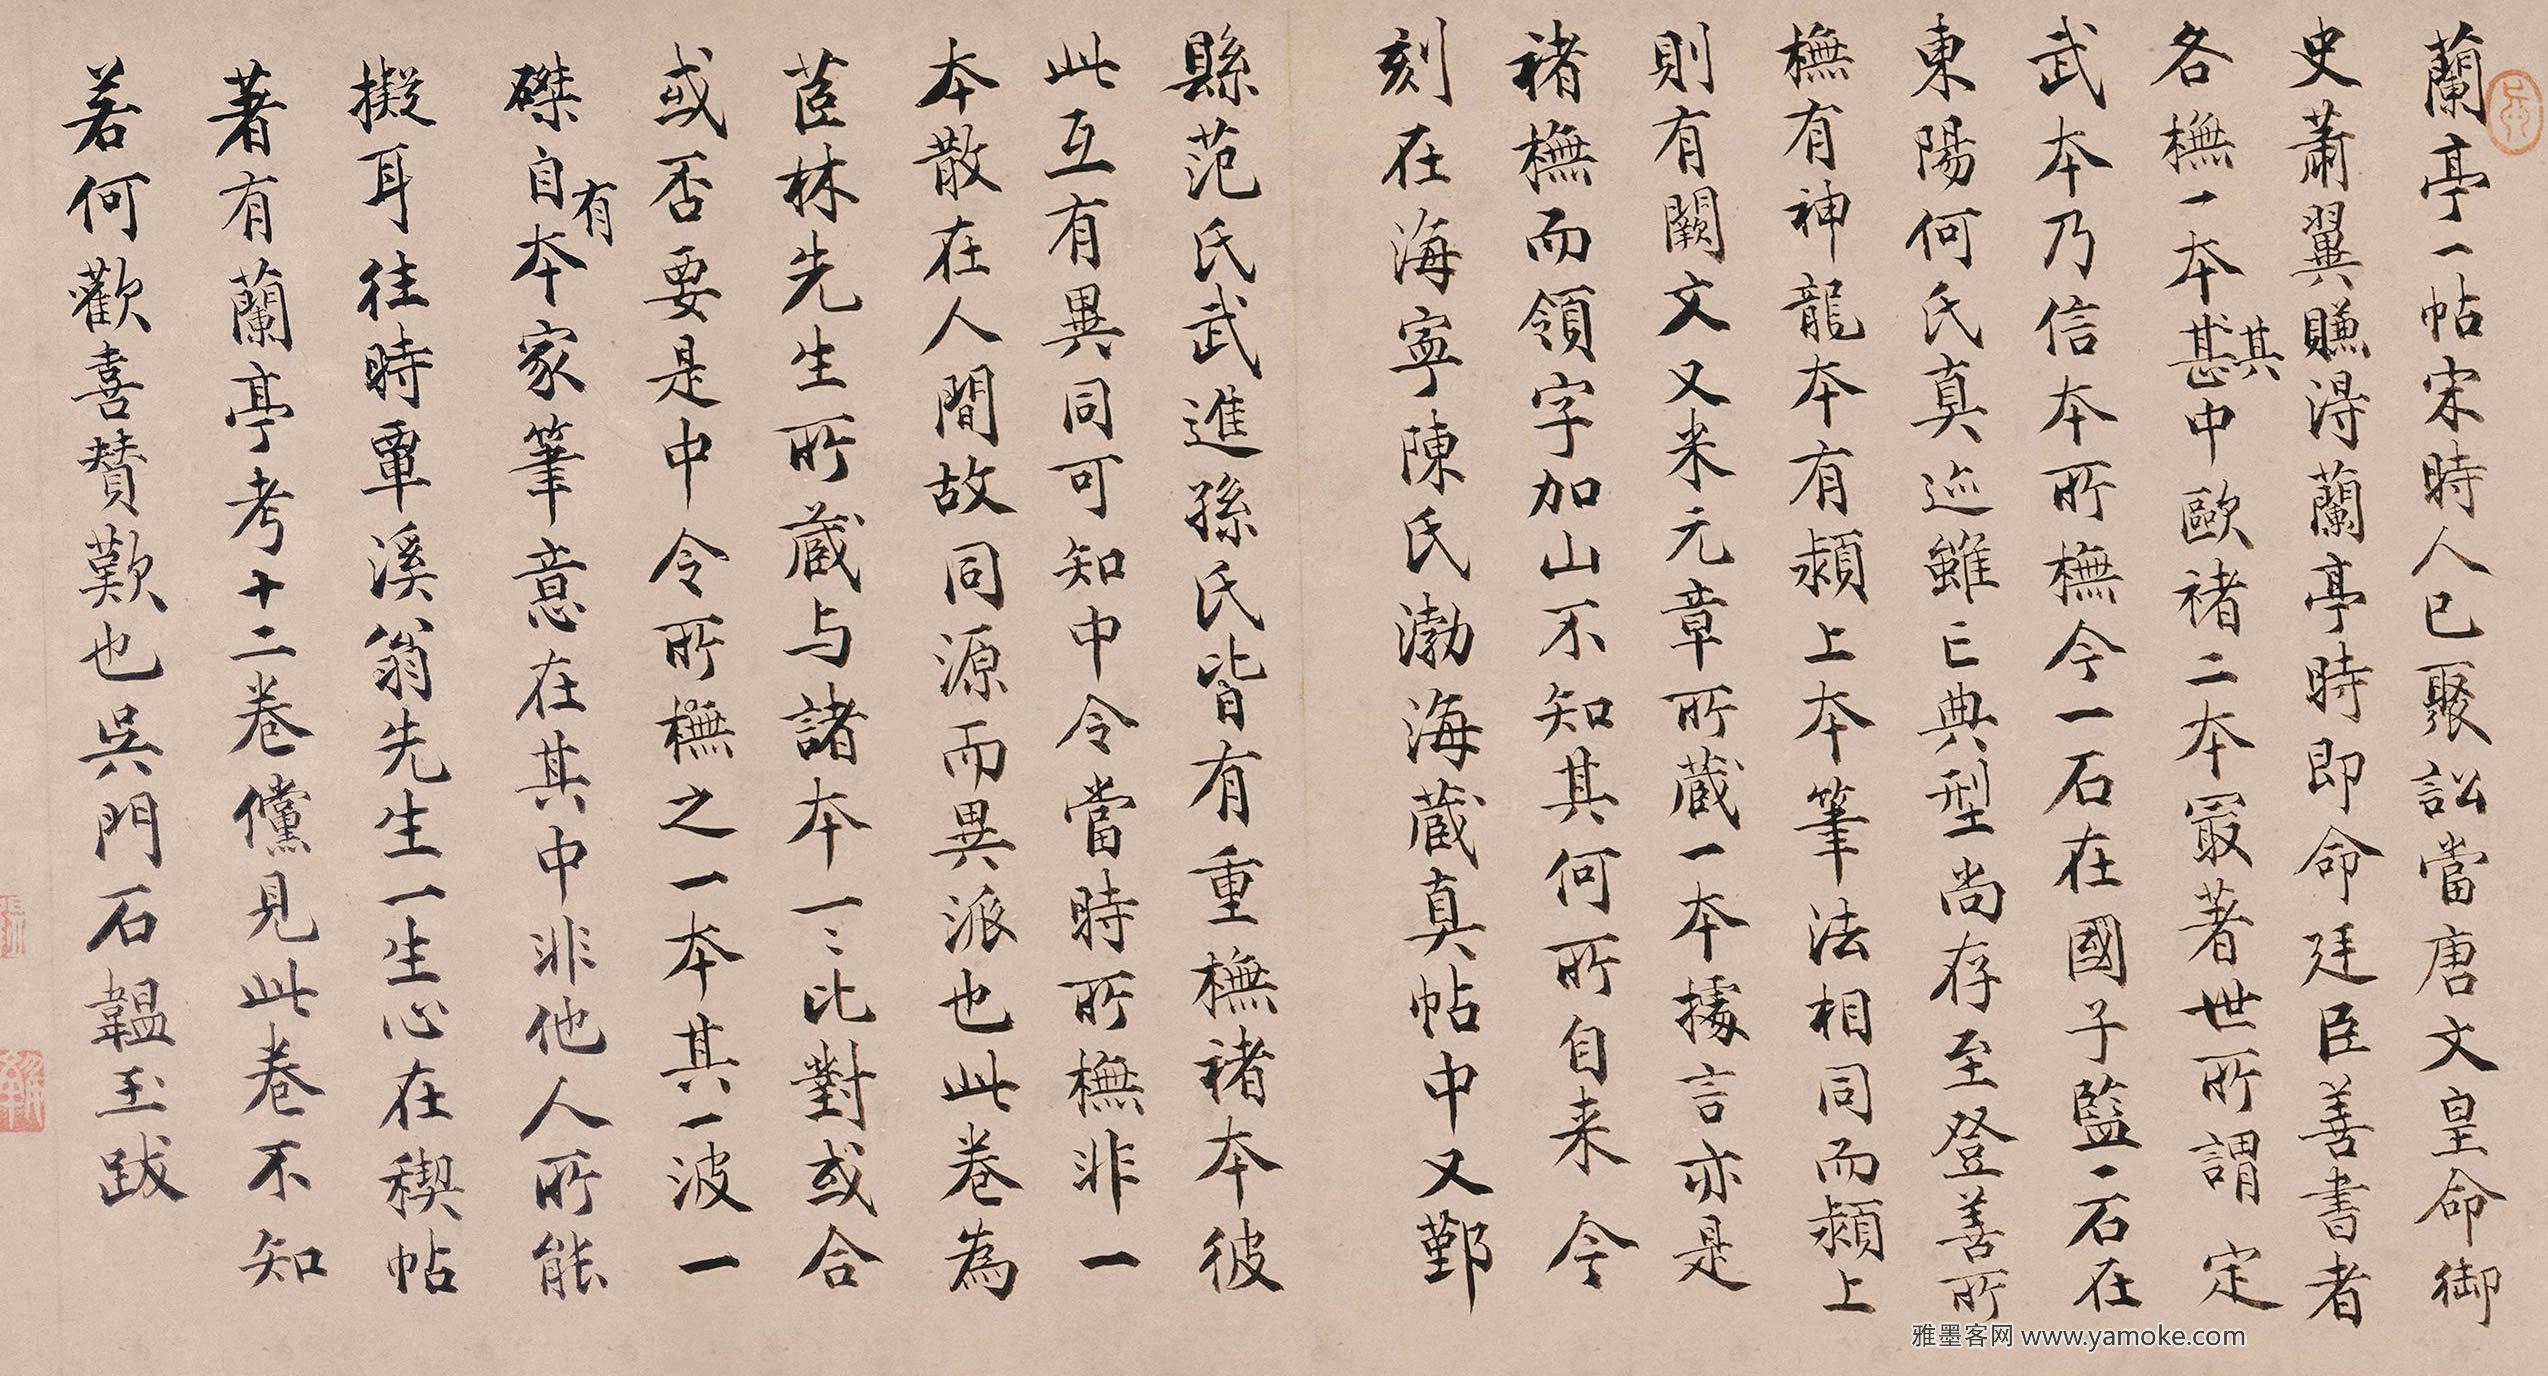 蘭亭一帖宋時人已聚訟當唐文皇命御
史蕭翼賺得蘭亭時即命廷臣善書者
各橅一本甚其中歐褚二本冣著世所謂定
武本乃信本所橅今一石在國子監一石在
東陽何氏真迹雖亡典型尚存至登善所
橅有神龍本有潁上本筆法相同而潁上
則有闕文又米元章所藏一本據言亦是
褚橅而領字加山不知其何所自来今
刻在海寧陳氏渤海藏真帖中又鄞
縣范氏武進孫氏皆有重橅褚本彼
此互有異同可知中令當時所橅非一
本散在人間故同源而異派也此卷為
茝林先生所藏与諸本一〻比對或合
或否要是中令所橅之一本其一波一
磔自有本家筆意在其中非他人所能
擬耳往時覃溪翁先生一生心在稧帖
著有蘭亭考十二卷儻見此卷不知
若何歡喜贊歎也吳門石韞玉跋
雅墨客网 www.yamoke.com